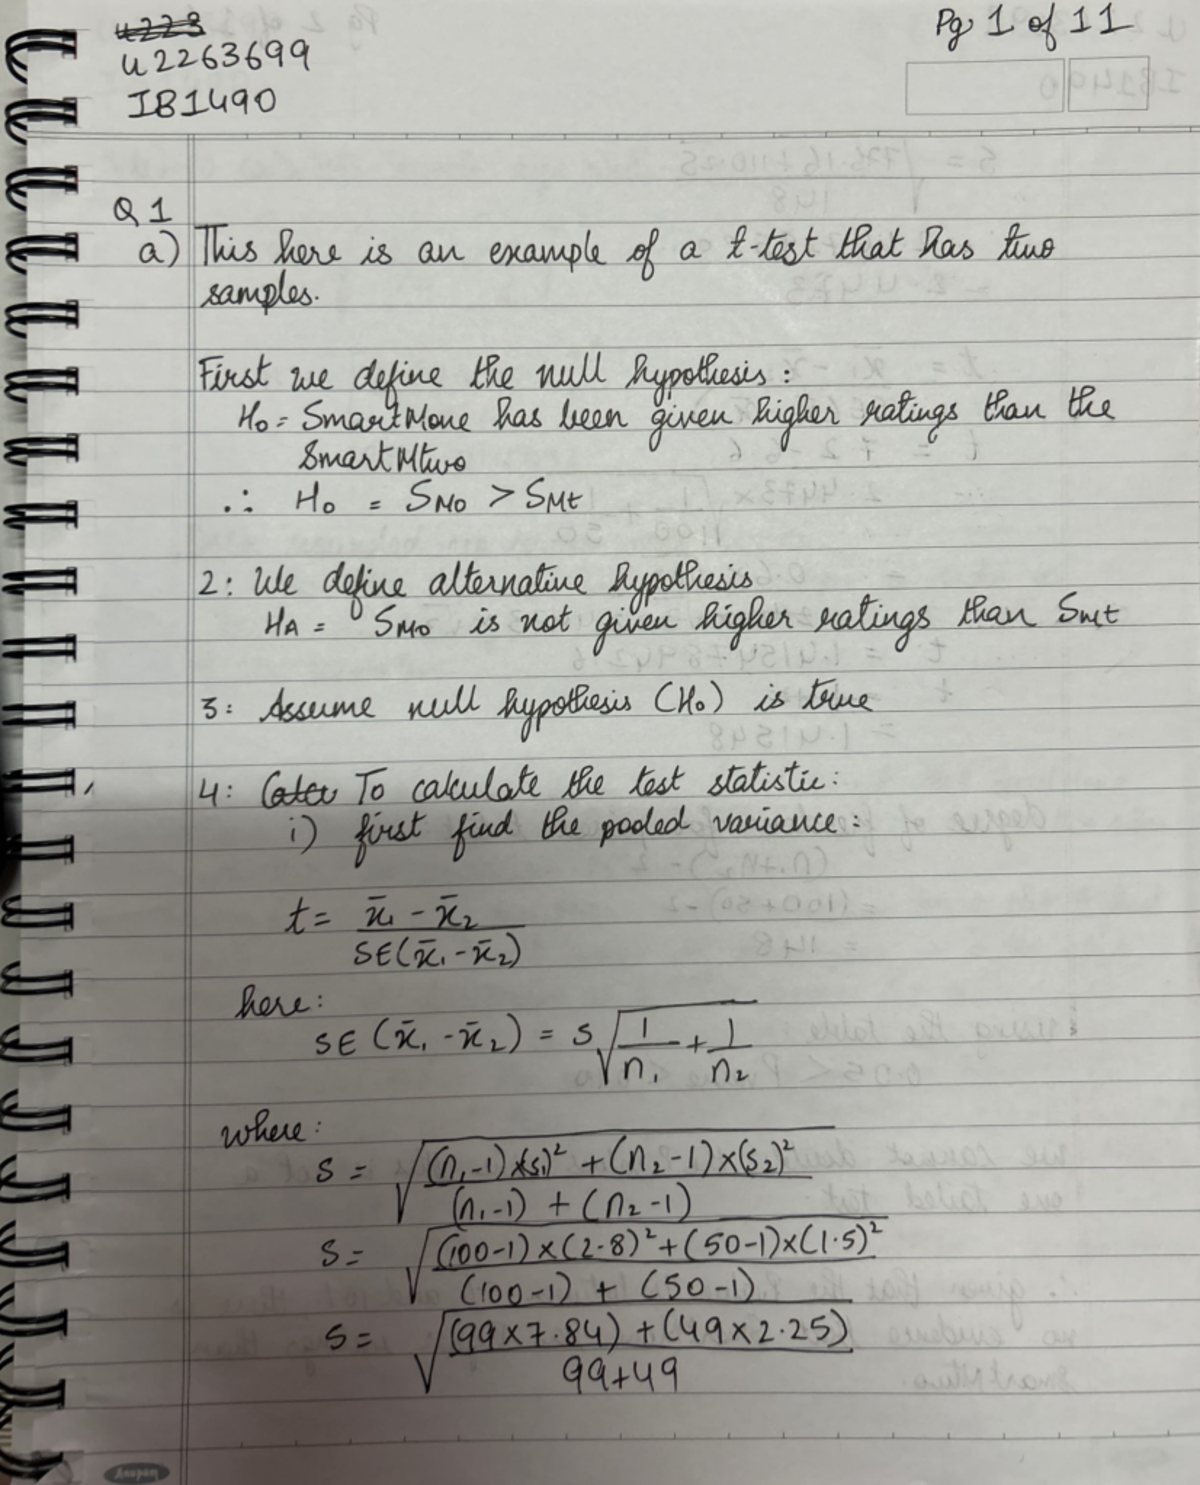 u223
u2263699
IB1490
Pg 1 of 11
Q1
a) This here is an example of a t-test that has two
samples.
First we define the null hypothesis:
H₀ = SmartMone has been given higher ratings than the
SmartMtwo
∴ H₀ = S_Mo > S_Mt
2: We define alternative hypothesis
H_A = S_Mo is not given higher ratings than S_Mt
3: Assume null hypothesis (H₀) is true
4: To calculate the test statistic:
i) first find the pooled variance:
t = (x̄₁ - x̄₂) / SE(x̄₁ - x̄₂)
here:
SE (x̄₁ - x̄₂) = s √(1/n₁ + 1/n₂)
where:
s = √(((n₁-1)×(s₁)² + (n₂-1)×(s₂)²) / ((n₁-1) + (n₂-1)))
s = √(((100-1)×(2.8)² + (50-1)×(1.5)²) / ((100-1) + (50-1)))
s = √(((99×7.84) + (49×2.25)) / (99+49))
Anupam